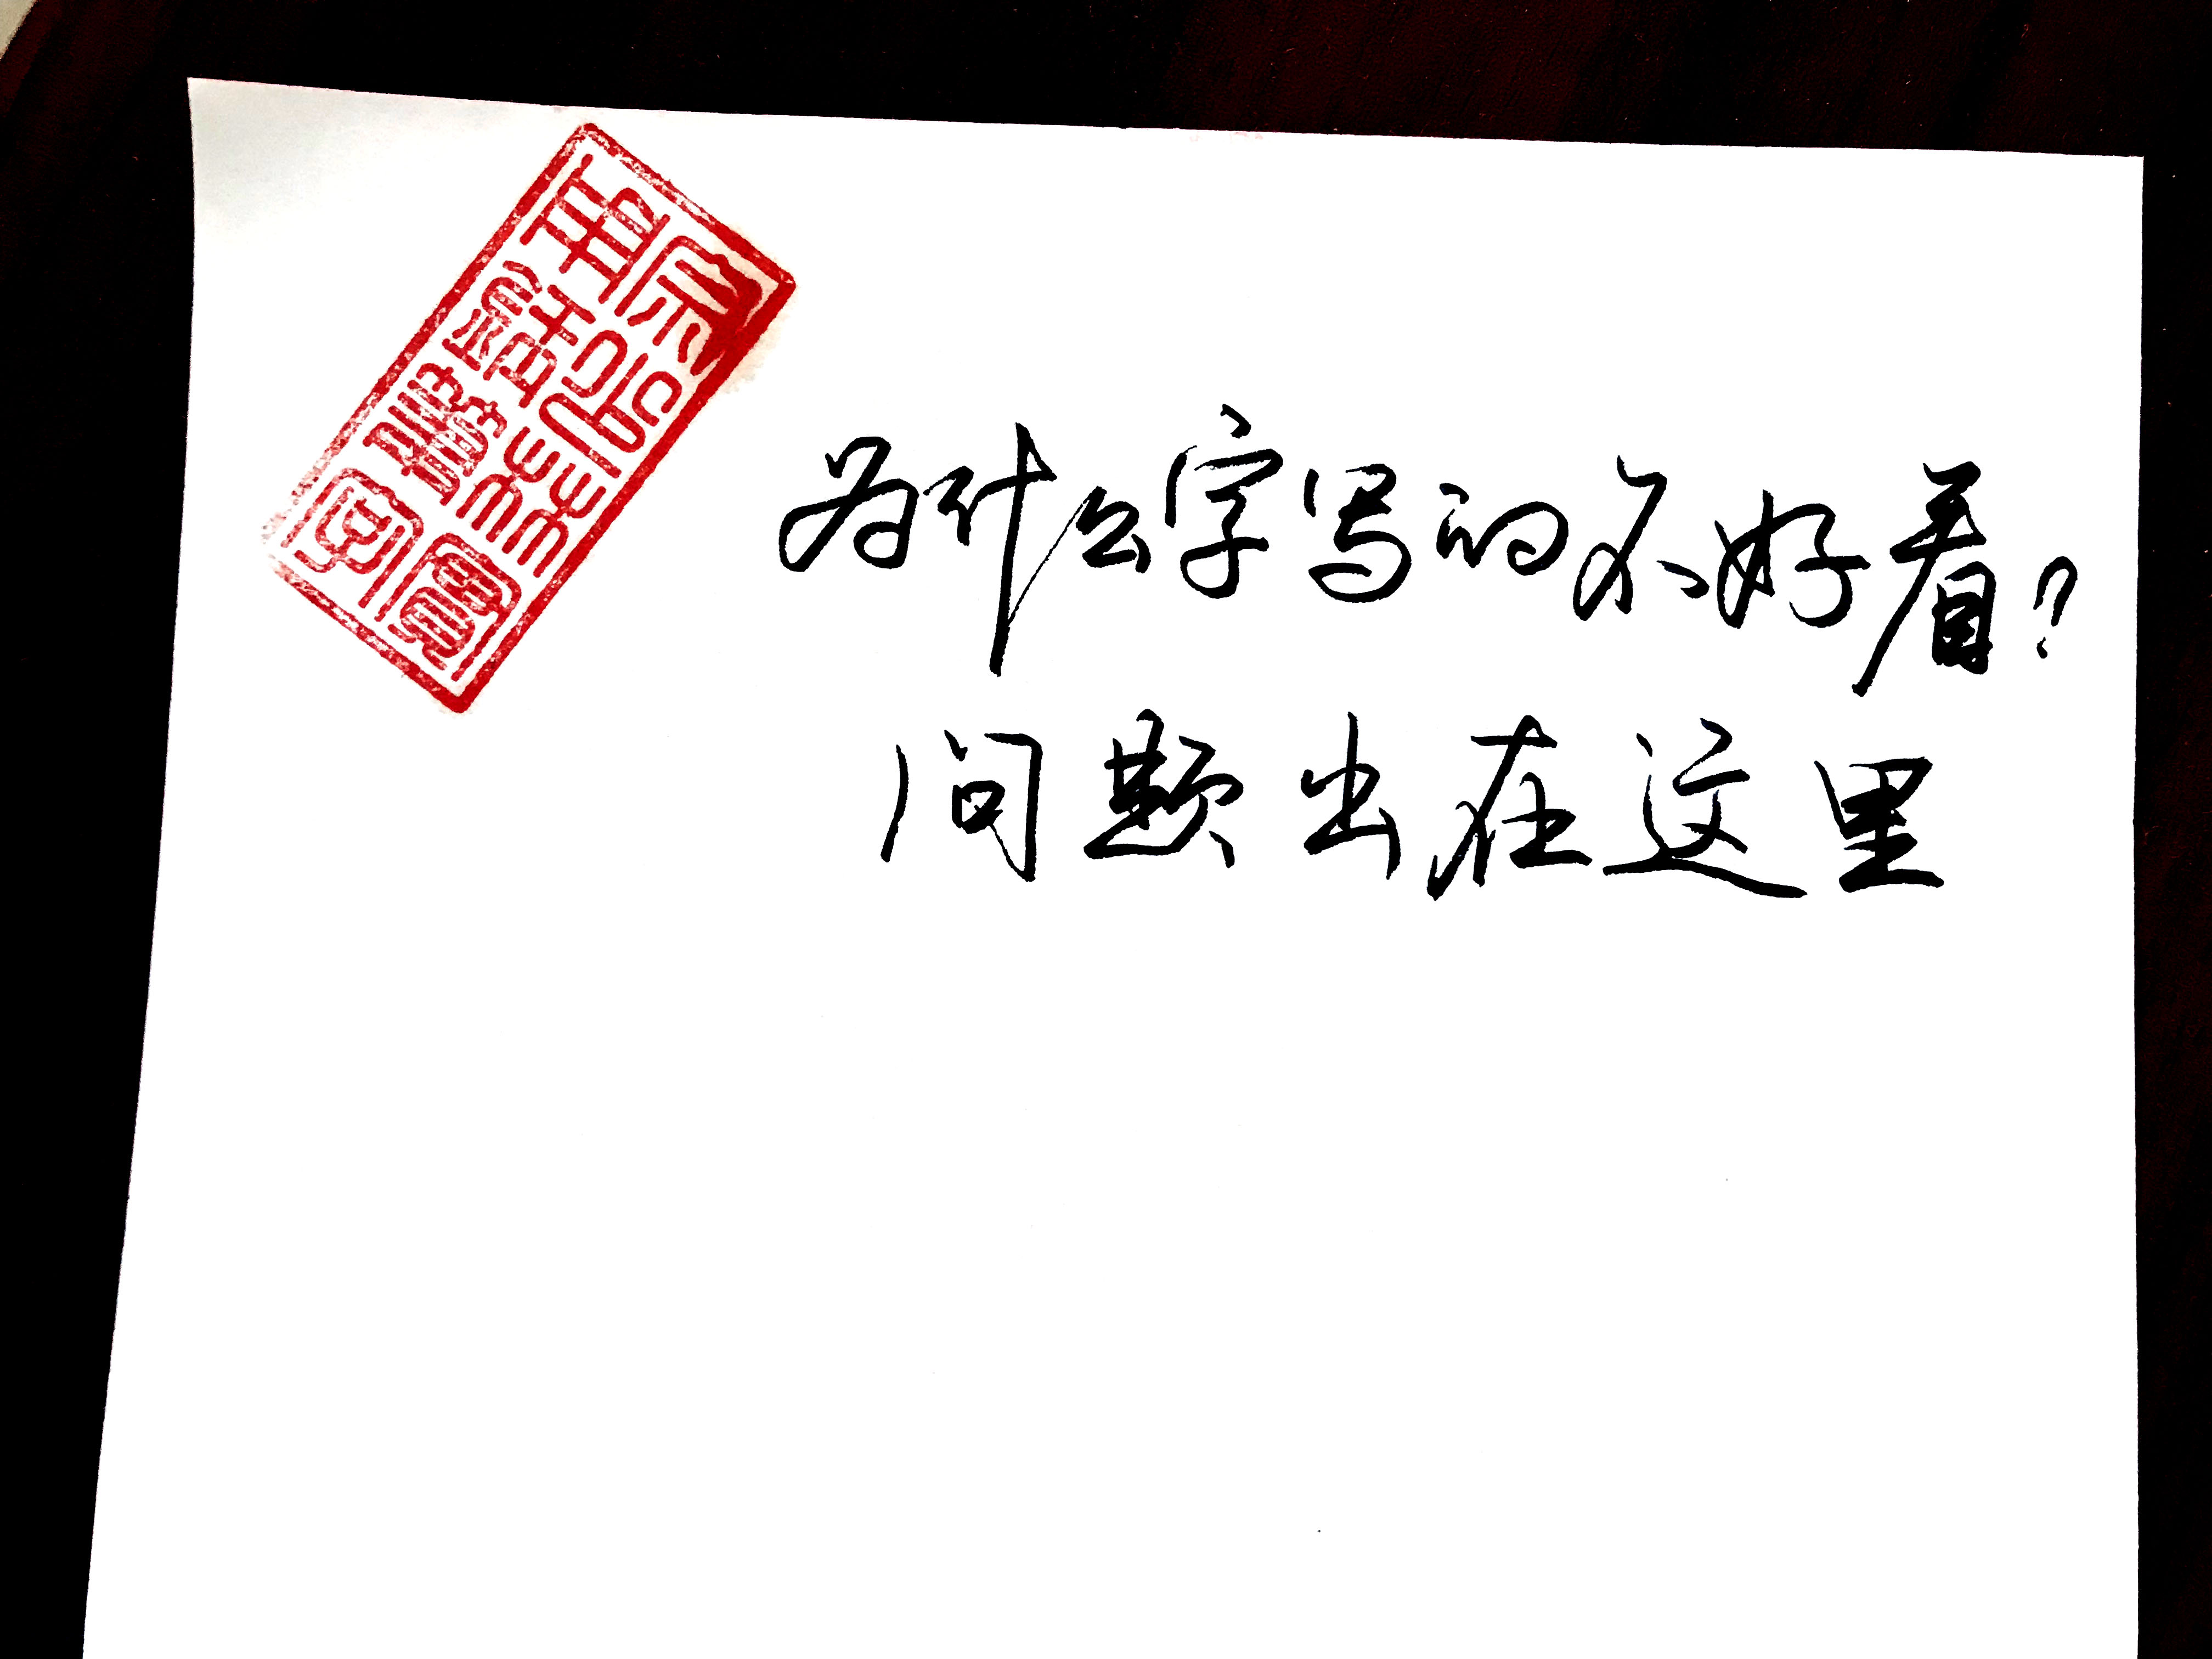 为什么字写的不好看?
问题出在这里